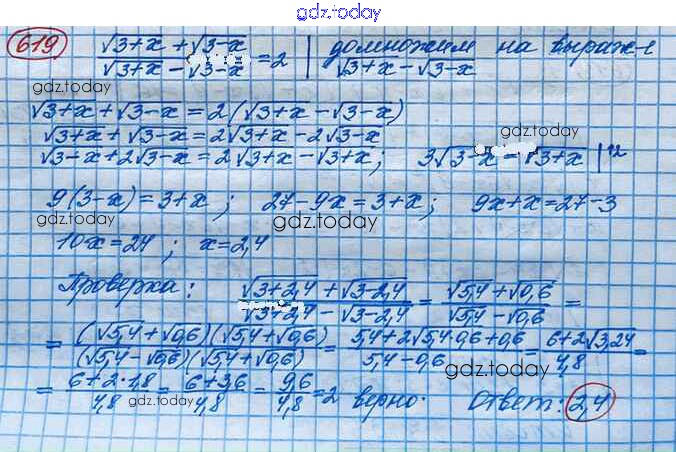 gdz.today
619 (√3+x + √3-x)/(√3+x - √3-x) = 2 | домножим на выраж-е √3+x - √3-x
gdz.today
√3+x + √3-x = 2(√3+x - √3-x)
√3+x + √3-x = 2√3+x - 2√3-x
gdz.today
√3-x + 2√3-x = 2√3+x - √3+x; 3√3-x = √3+x |↑2
9(3-x) = 3+x; 27-9x = 3+x; 9x+x = 27-3
gdz.today gdz.today gdz.today
10x = 24; x = 2,4
Проверка: (√3+2,4 + √3-2,4)/(√3+2,4 - √3-2,4) = (√5,4 + √0,6)/(√5,4 - √0,6) =
= (√5,4+√0,6)(√5,4+√0,6)/(√5,4-√0,6)(√5,4+√0,6) = (5,4+2√5,4·0,6+0,6)/(5,4-0,6) = (6+2√3,24)/4,8 =
gdz.today
= (6+2·1,8)/4,8 = (6+3,6)/4,8 = 9,6/4,8 = 2 верно. Ответ: 2,4
gdz.today gdz.today